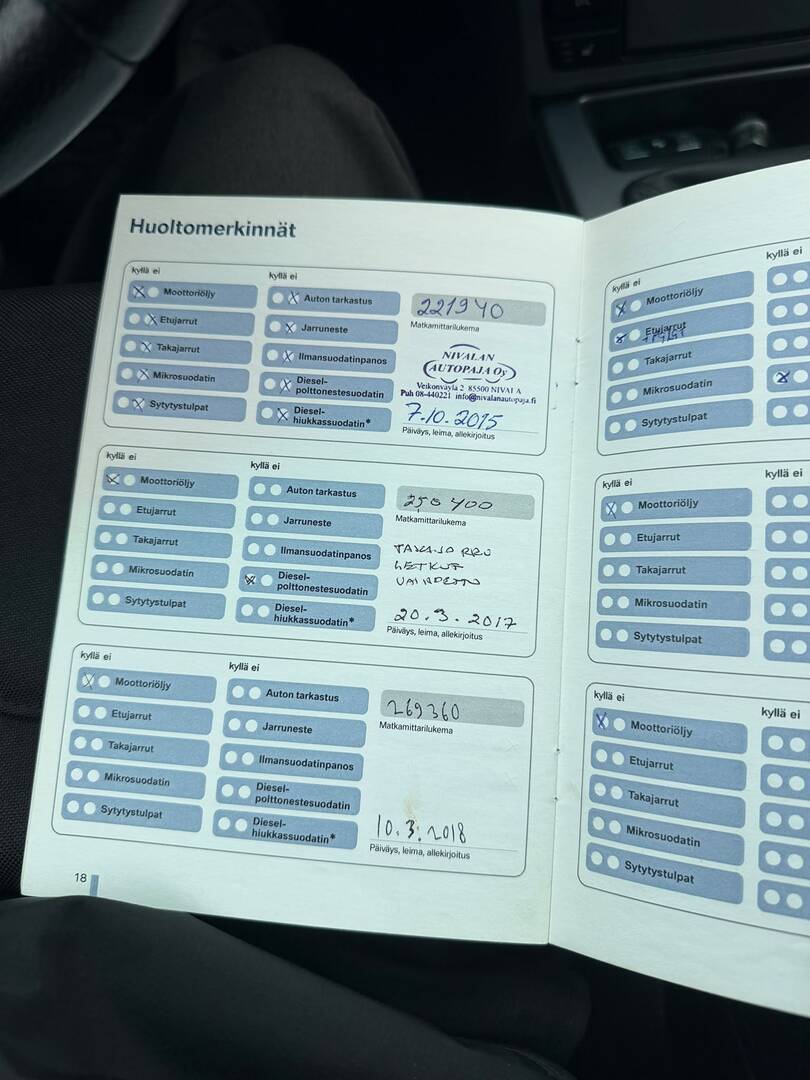 Huoltomerkinnät
kyllä ei
kyllä ei
Moottoriöljy
Etujarrut
Takajarrut
Mikrosuodatin
Sytytystulpat
Auton tarkastus
Jarruneste
Ilmansuodatinpanos
Diesel-
polttonestesuodatin
Diesel-
hiukkassuodatin*
221940
Matkamittarilukema
NIVALAN
AUTOPAJA Oy
Veikonväylä 2 85500 NIVALA
Puh 08-440221 info@nivalanautopaja.fi
7.10.2015
Päiväys, leima, allekirjoitus
kyllä ei
kyllä ei
Moottoriöljy
Etujarrut
Takajarrut
Mikrosuodatin
Sytytystulpat
Auton tarkastus
Jarruneste
Ilmansuodatinpanos
Diesel-
polttonestesuodatin
Diesel-
hiukkassuodatin*
250 400
Matkamittarilukema
20.3.2017
Päiväys, leima, allekirjoitus
kyllä ei
kyllä ei
Moottoriöljy
Etujarrut
Takajarrut
Mikrosuodatin
Sytytystulpat
Auton tarkastus
Jarruneste
Ilmansuodatinpanos
Diesel-
polttonestesuodatin
Diesel-
hiukkassuodatin*
269360
Matkamittarilukema
10.3.2018
Päiväys, leima, allekirjoitus
18
kyllä ei
kyllä ei
Moottoriöljy
Etujarrut
Takajarrut
Mikrosuodatin
Sytytystulpat
kyllä ei
kyllä ei
Moottoriöljy
Etujarrut
Takajarrut
Mikrosuodatin
Sytytystulpat
kyllä ei
kyllä ei
Moottoriöljy
Etujarrut
Takajarrut
Mikrosuodatin
Sytytystulpat